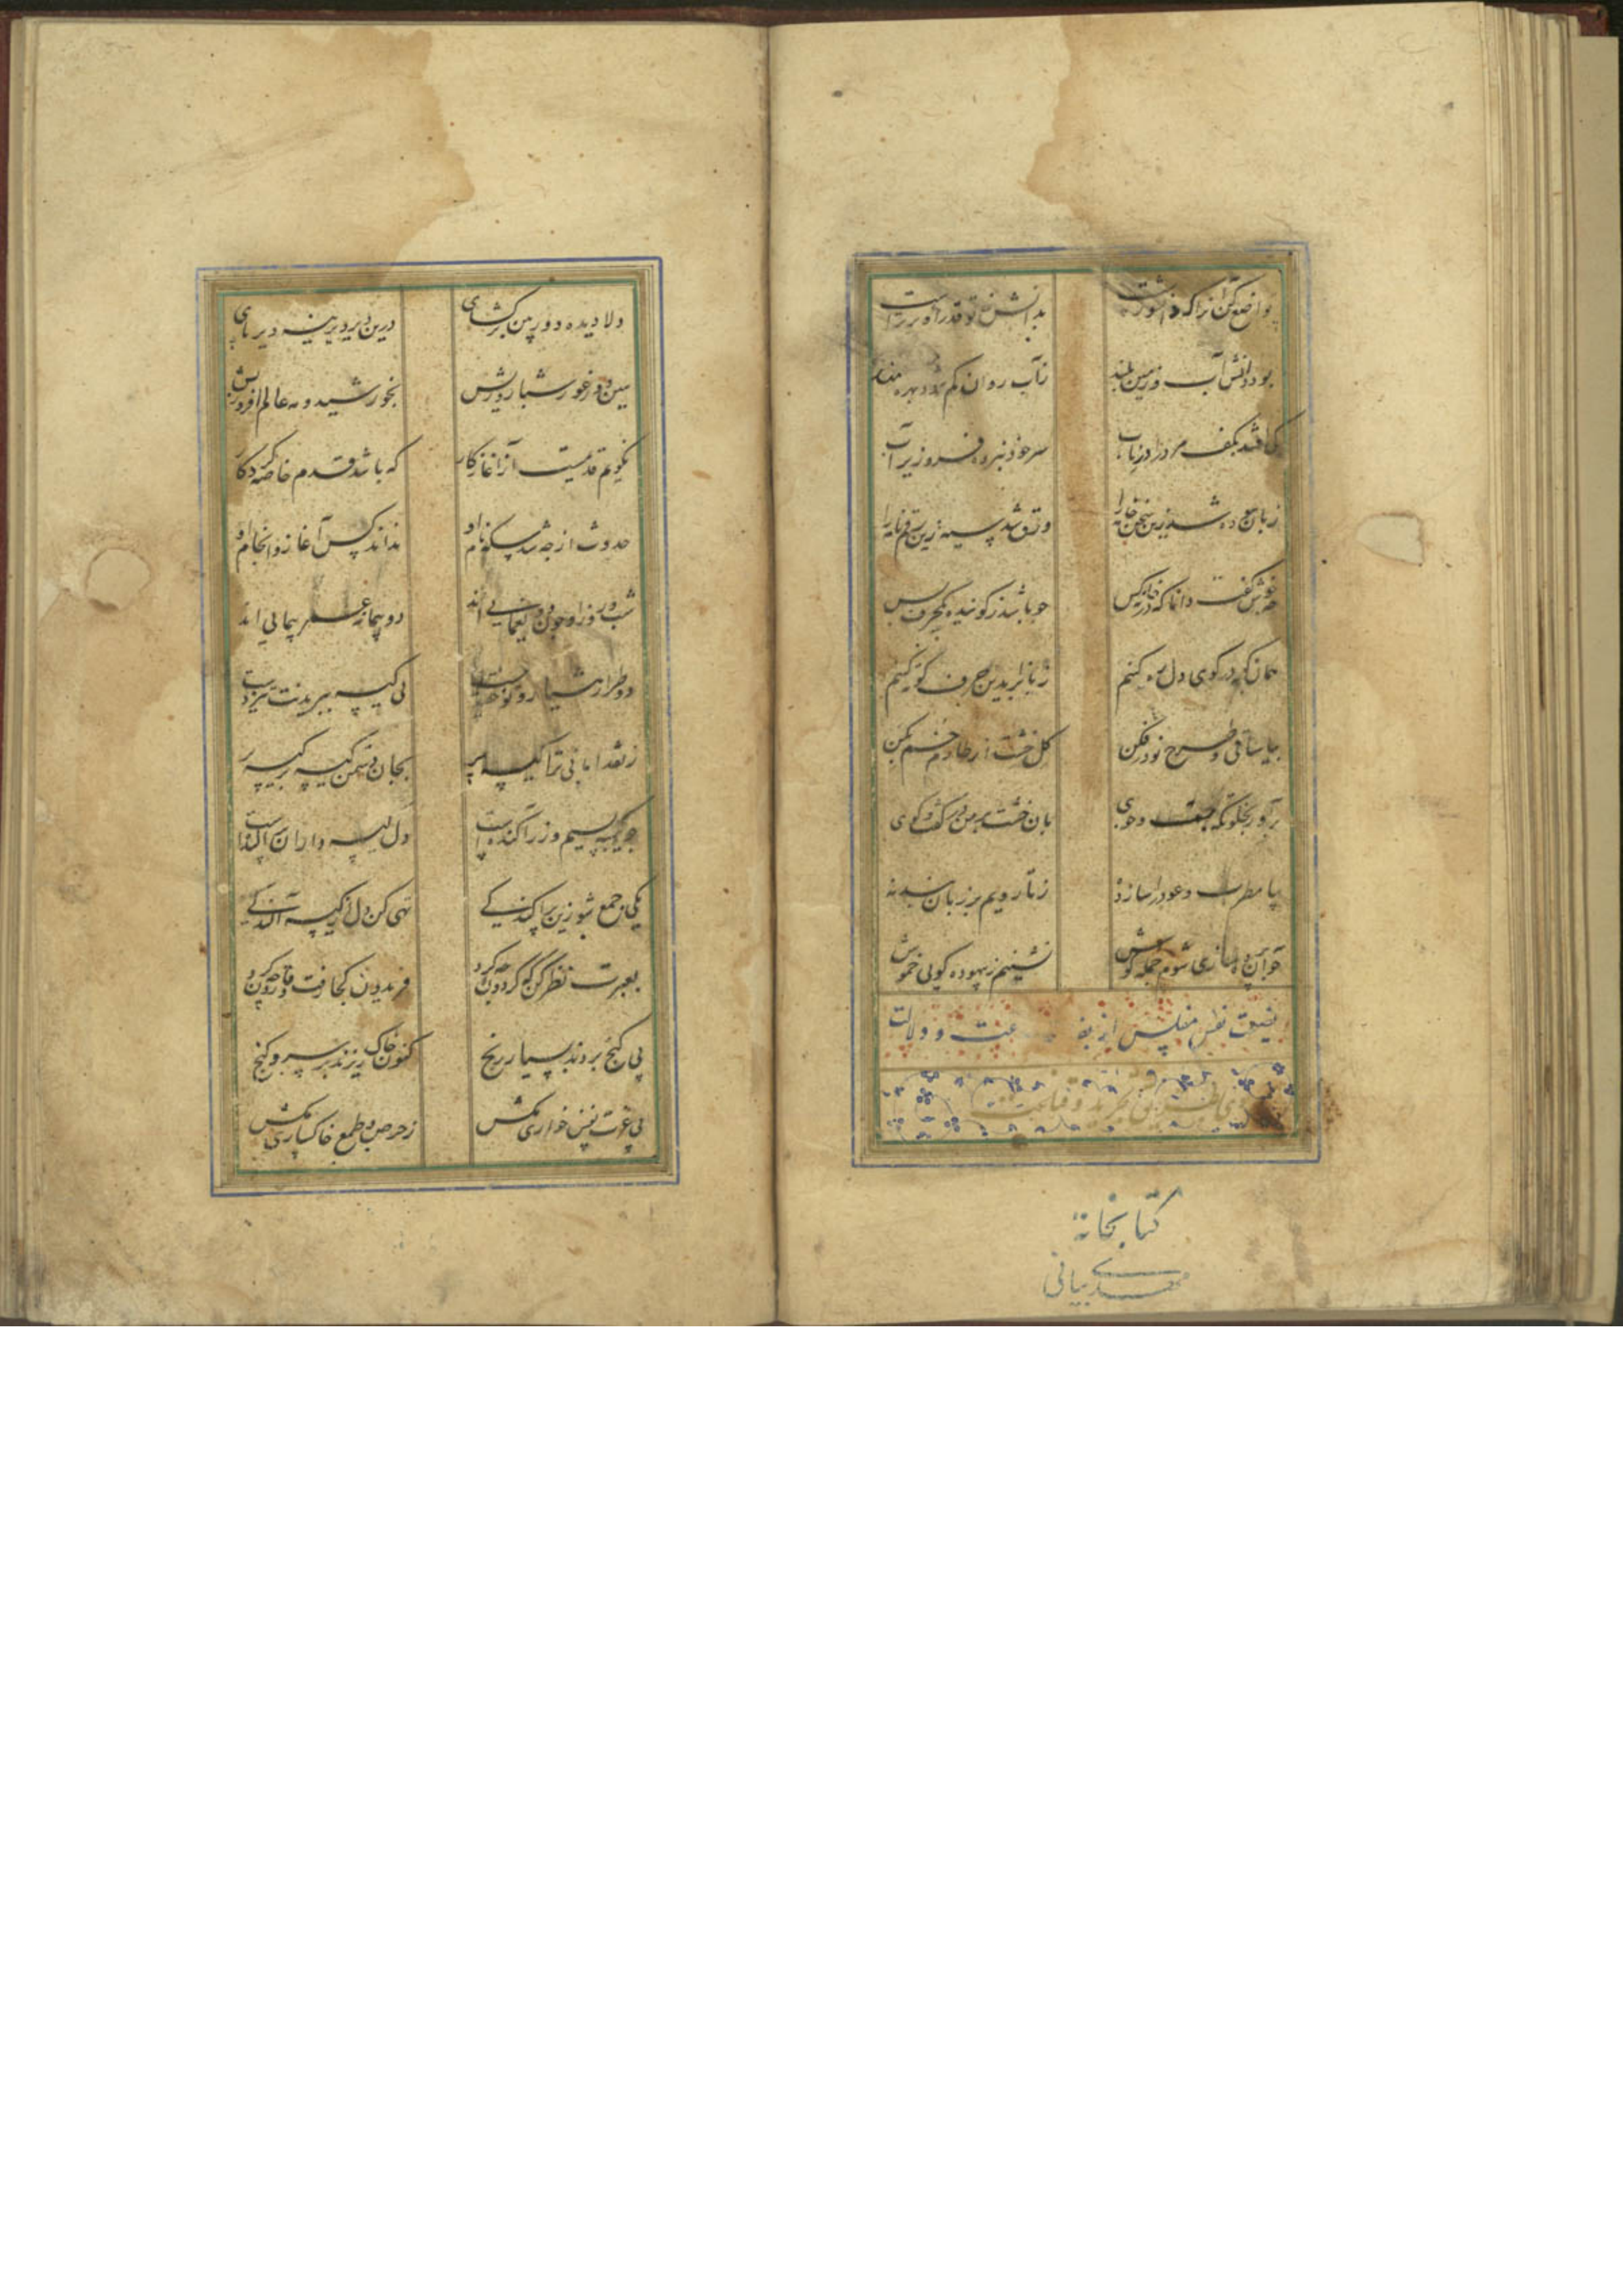 تواضع کن آنرا که دانشورست بدانش ز تو قدر او برترست
بود دانش آب و زمین بلند ز آب روان کم شود بهره مند
کی افتد بکف مرد را در ناب سر خود نبرده فرو زیر آب
زبان سوده شد زین سخن خامه را ورق شد سیه زین رقم نامه را
چه خوش گفت دانا که در خانه کس چو باشد ز گوینده یکحرف بس
همان به که در کوی دل ره کنیم زبانرا بدین حرف کوته کنیم
بیا ساقی و طرح نو در فکن گل خشت از طارم خم بکن
برآور بخلوتگه جست و جوی بآن خشت بر من در گفت و گوی
بیا مطرب و عود را ساز ده ز تار ویم بر زبان بند نه
چو آن پرده سازی شوم جمله گوش نشینم ز بیهوده گویی خموش
نصیحت نفس مفلس از و دلالت
وی بطریق تجرید و قناعت
کتابخانهٔ
مهدی بیانی
دلا دیده دوربین برگشای درین دیر دیرینه دیرپای
ببین دور غور شبا روزیش بخورشید و مه عالم افروزیش
نگویم قدیمست از آغاز کار که باشد قدم خاصه کردگار
حدوث ار چه شد سکه نام او نداند کس آغاز و انجام او
شب و روز او چون دو یغمایی اند دو پیمانه عمر پیمایی اند
دو طرار هشیار و تو خفته مست پی کیسه ببریدنت تیز دست
ز نقد امانی ترا کیسه پر بجان دشمنت کیسه بر کیسه بر
چو کیسه بسیم و زر آکنده است دل کیسه داران پراکنده است
یکی جمع شو زین پراکندگی تهی کن دل از کیسه آکندگی
بعبرت نظر کن که گردون چه کرد فریدون کجا رفت و قارون چه کرد
پی گنج بردند بسیار رنج کنون خاک ریزند بر سر چو گنج
پی عزت نفس خواری مکش ز حرص و طمع خاکساری مکش